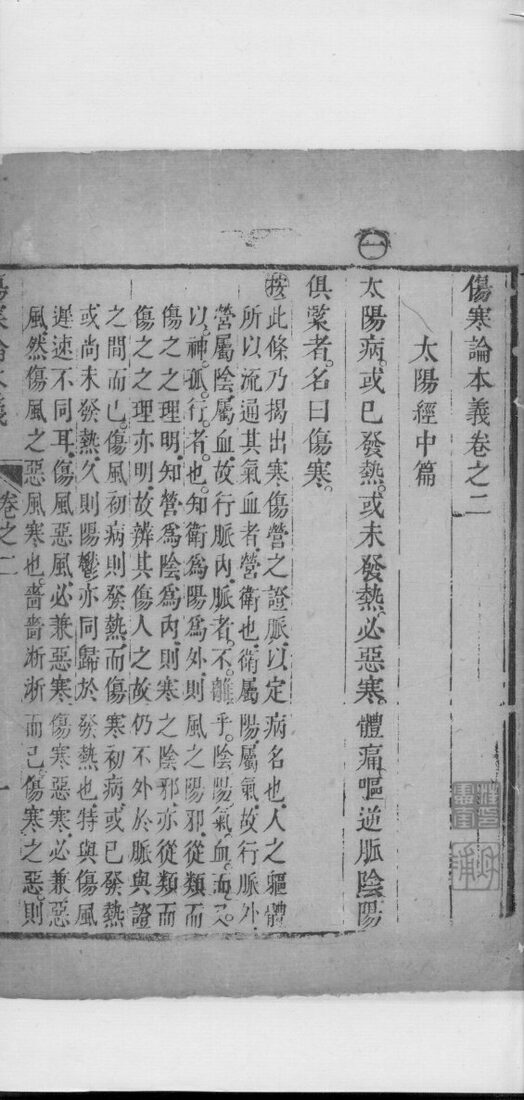 一
傷寒論本義卷之二
太陽經中篇
太陽病。或已發熱。或未發熱。必惡寒。體痛嘔逆脈陰陽
俱緊者。名曰傷寒。
按此條乃揭出寒傷營之證脈。以定病名也。人之軀體
所以流通其氣血者。營衛也。衛屬陽。屬氣。故行脈外。
營屬陰。屬血。故行脈內。脈者。不離乎。陰陽氣血。而又。
以。神。孤。行。者。也。知衛爲陽。爲外。則風之陽邪。從類而
傷之之理明。知營爲陰。爲內。則寒之陰邪。亦從類而
傷之之理亦明。故辨其傷人之故。仍不外於脈與證
之間而已。傷風初病。則發熱。而傷寒初病。或已發熱
或尚未發熱。久則陽鬱。亦同歸於發熱也。特與傷風
遲速不同耳。傷風惡風。必兼惡寒。傷寒惡寒。必兼惡
風。然傷風之惡風寒也。嗇嗇淅淅而已。傷寒之惡。則
傷寒論本義
卷之二
一